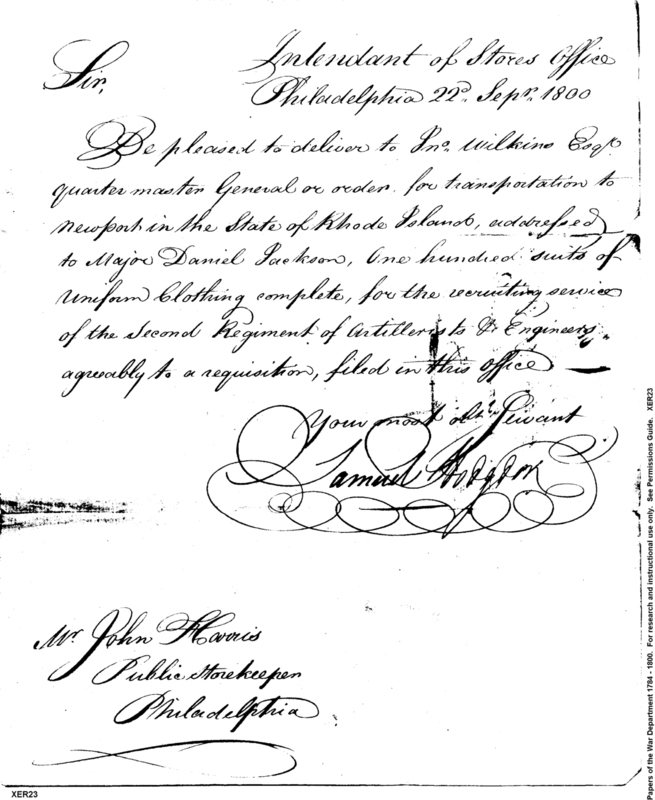 Intendant of Stores Office
Sir,
Philadelphia 22d. Sepr. 1800
Be pleased to deliver to Jno. Wilkins Esqr.
quarter master General or order for transportation to
Newport in the State of Rhode Island, addressed
to Major Daniel Jackson, One hundred suits of
Uniform Clothing complete, for the recruiting service
of the Second Regiment of Artillerists & Engineers,
agreeably to a requisition, filed in this office
Your most obt. Servant
Samuel Hodgdon
Mr. John Harris
Public Storekeeper
Philadelphia
XER23
Papers of the War Department 1784 - 1800. For research and instructional use only. See Permissions Guide. XER23